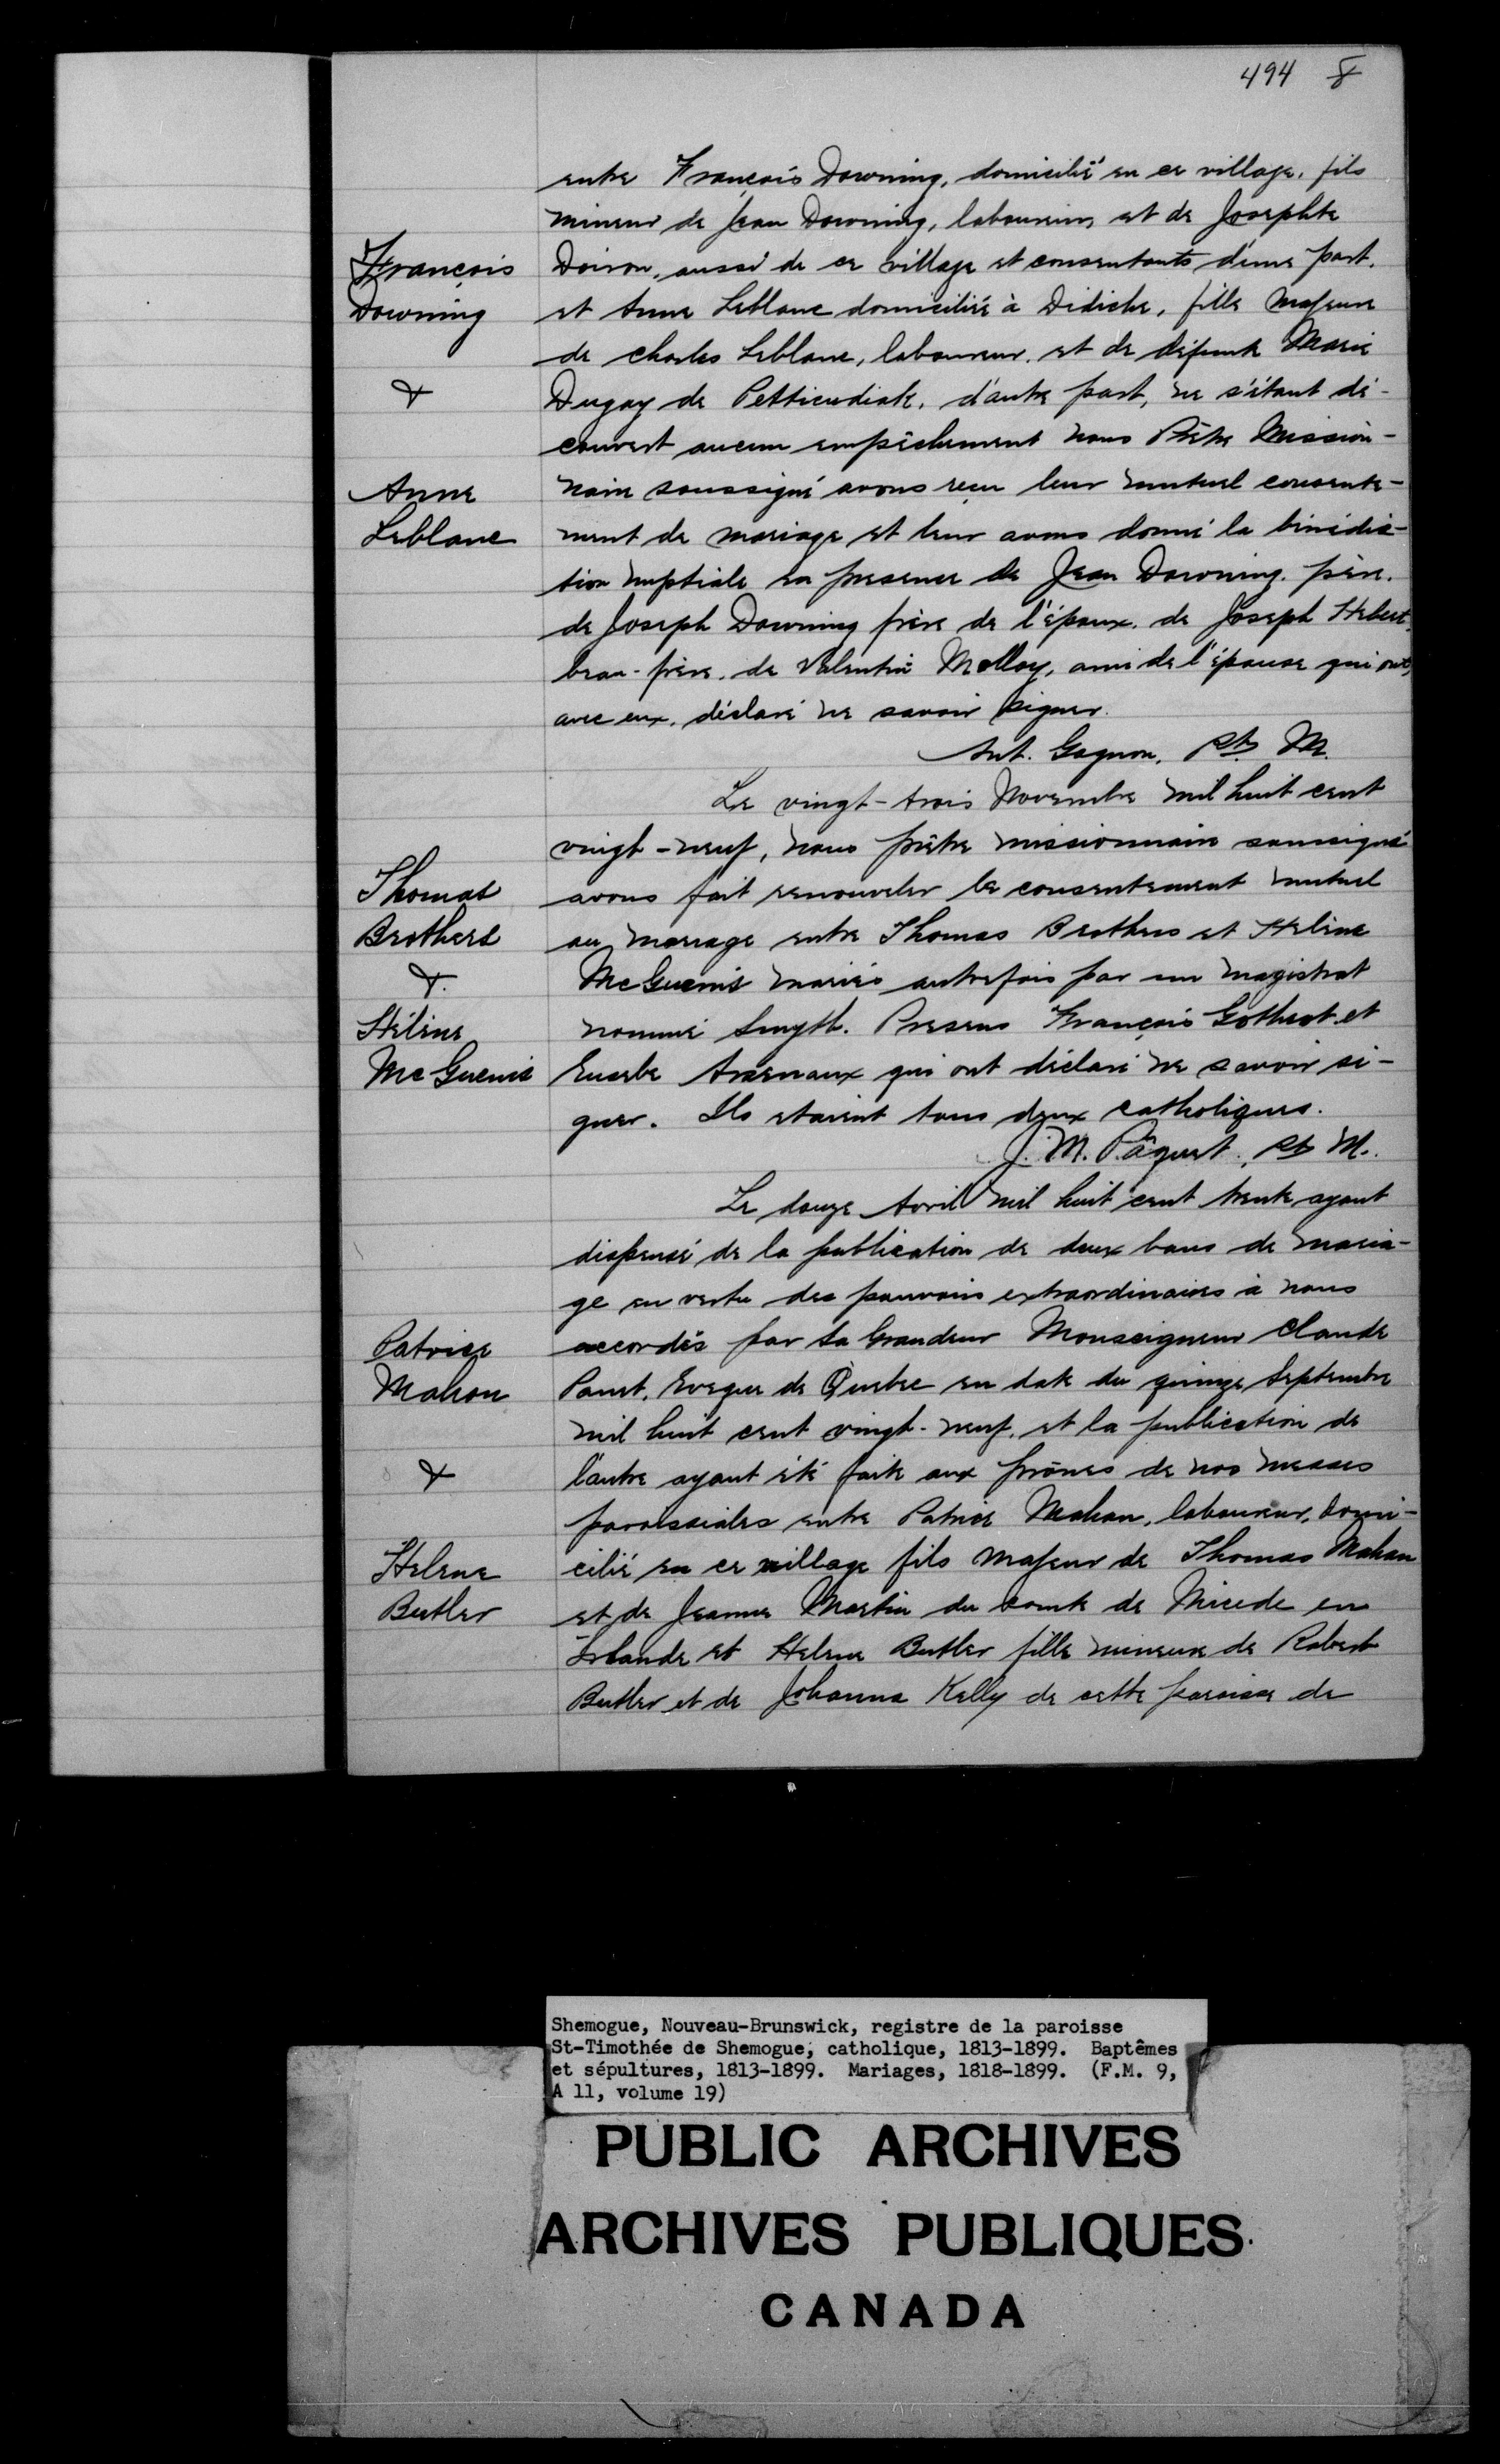 494 8
entre François Downing, domicilié en ce village, fils
mineur de Jean Downing, laboureur, et de Josephte
François
Doiron, aussi de ce village et consentants d'une part,
Downing
et Anne Leblanc domiciliée à Didiche, fille majeure
de Charles Leblanc, laboureur, et de défunte Marie
&
Dugay de Petticudiak, d'autre part, ne s'étant dé-
couvert aucun empêchement nous Prêtre Mission-
Anne
naire soussigné avons reçu leur mutuel consente-
Leblanc
ment de mariage et leur avons donné la bénédic-
tion nuptiale en presence de Jean Downing, père,
de Joseph Downing frère de l'époux, de Joseph Hebert,
beau-frère, de Valentin Molloy, ami de l'épouse qui ont,
avec eux, déclaré ne savoir signer.
Ant. Gagnon, Ptr. M.
Le vingt-trois Novembre mil huit cent
vingt-neuf, nous prêtre missionnaire soussigné
Thomas
avons fait renouveler le consentement mutuel
Brothers
au mariage entre Thomas Brothers et Helène
&
McGuenis mariés autrefois par un magistrat
Hélène
nommé Smyth. Presens François Gothrot et
McGuenis
Eusebe Arsenaux qui ont déclaré ne savoir si-
gner. Ils étaient tous deux catholiques.
J. M. Pâquet, Ptr M.
Le douze Avril mil huit cent trente ayant
dispensé de la publication de deux bans de maria-
ge en vertu des pouvoirs extraordinaires à nous
Patrice
accordés par Sa Grandeur Monseigneur Claude
Mahon
Panet, Eveque de Quebec en date du quinze Septembre
mil huit cent vingt-neuf, et la publication de
&
l'autre ayant été faite aux prônes de nos messes
paroissiales entre Patrice Mahan, laboureur, domi-
Helene
cilié en ce village fils majeur de Thomas Mahan
Butler
et de Jeanne Martin du comté de Micede en
Irlande et Helene Butler fille mineure de Robert
Butler et de Johanna Kelly de cette paroisse de
Shemogue, Nouveau-Brunswick, registre de la paroisse
St-Timothée de Shemogue, catholique, 1813-1899. Baptêmes
et sépultures, 1813-1899. Mariages, 1818-1899. (F.M. 9,
A 11, volume 19)
PUBLIC ARCHIVES
ARCHIVES PUBLIQUES
CANADA